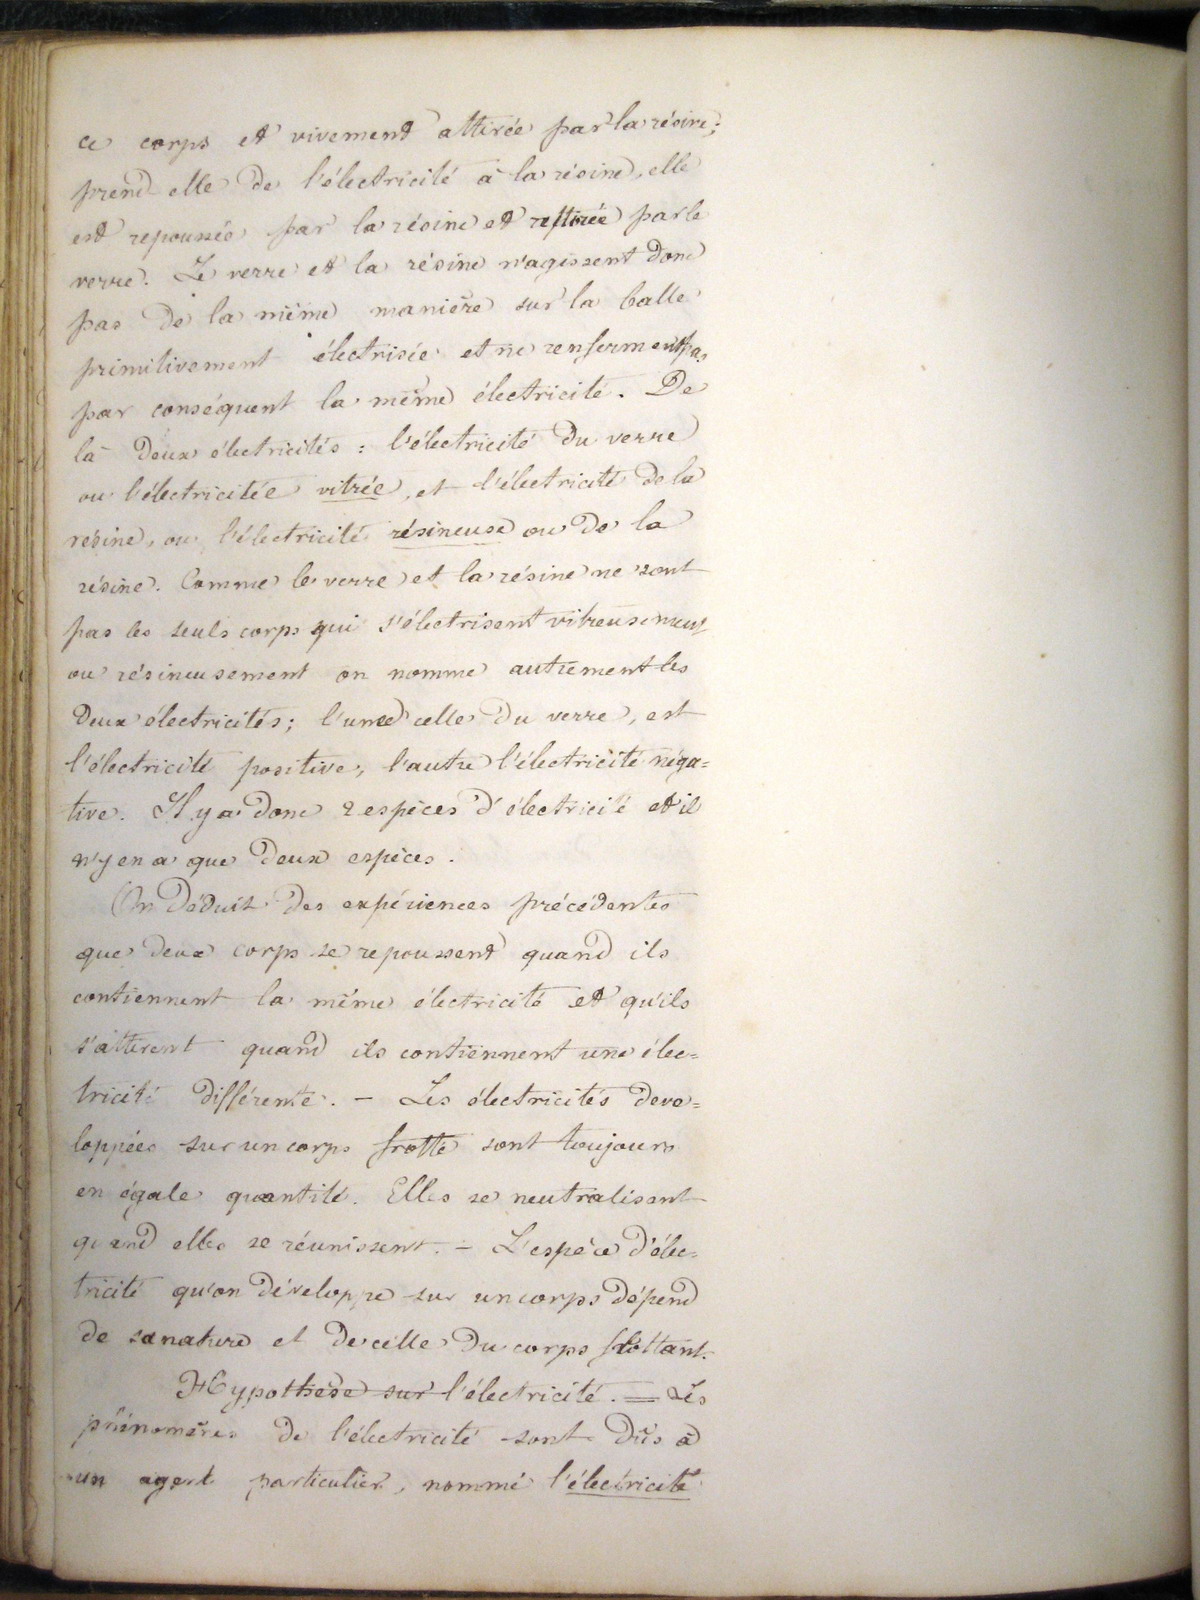 ce corps et vivement attirée par la résine;
prend elle de l'électricité à la résine, elle
est repoussée par la résine et attirée par le
verre. Le verre et la résine n'agissent donc
pas de la même manière sur la balle
primitivement électrisée et ne renferment pas
par conséquent la même électricité. De
là deux électricités : l'électricité du verre
ou l'électricitée vitrée, et l'électricité de la
resine, ou l'électricité résineuse ou de la
résine. Comme le verre et la résine ne sont
pas les seuls corps qui s'électrisent vitreusement
ou résineusement on nomme autrement les
deux électricités; l'une celle du verre, est
l'électricité positive, l'autre l'électricité néga=
tive. Il y a donc 2 espèces d'électricité et il
n'y en a que deux espèces.
On déduit des expériences précédentes
que deux corps se repoussent quand ils
contiennent la même électricité et qu'ils
s'attirent quand ils contiennent une élec=
tricité différente. - Les électricités deve=
loppées sur un corps frotté sont toujours
en égale quantité. Elles se neutralisent
quand elles se réunissent. - L'espèce d'élec=
tricité qu'on développe sur un corps dépend
de sa nature et de celle du corps frottant.
Hypothèse sur l'électricité. = Les
phénomènes de l'électricité sont dûs à
un agent particulier, nommé l'électricité